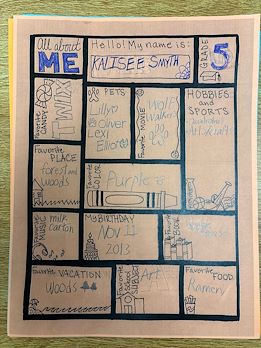 All about
ME
Hello! My name is:
KALISEE SMYTH
GRADE
5
Favorite CANDY
TWIX
PETS
Lilly
Oliver
Lexi
Elliot
Favorite MOVIE
Wolf
Walker
HOBBIES
and
SPORTS
Favorite
PLACE
forest and
woods
Favorite COLOR
Purple
MUSIC
milk
carton
MY BIRTHDAY
Nov 11
2013
Favorite BOOK
Favorite VACATION
Woods
Favorite SUBJECT
Art
Favorite FOOD
Ramen